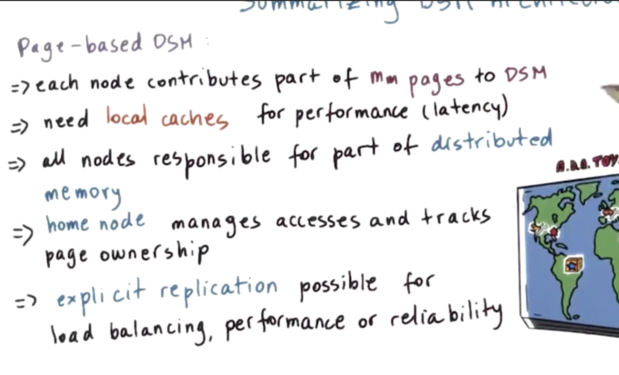 Summarizing DSM Architecture
Page-based DSM :
=> each node contributes part of mm pages to DSM
=> need local caches for performance (latency)
=> all nodes responsible for part of distributed
memory
=> home node manages accesses and tracks
page ownership
=> explicit replication possible for
load balancing, performance or reliability
A.B.B. TOY